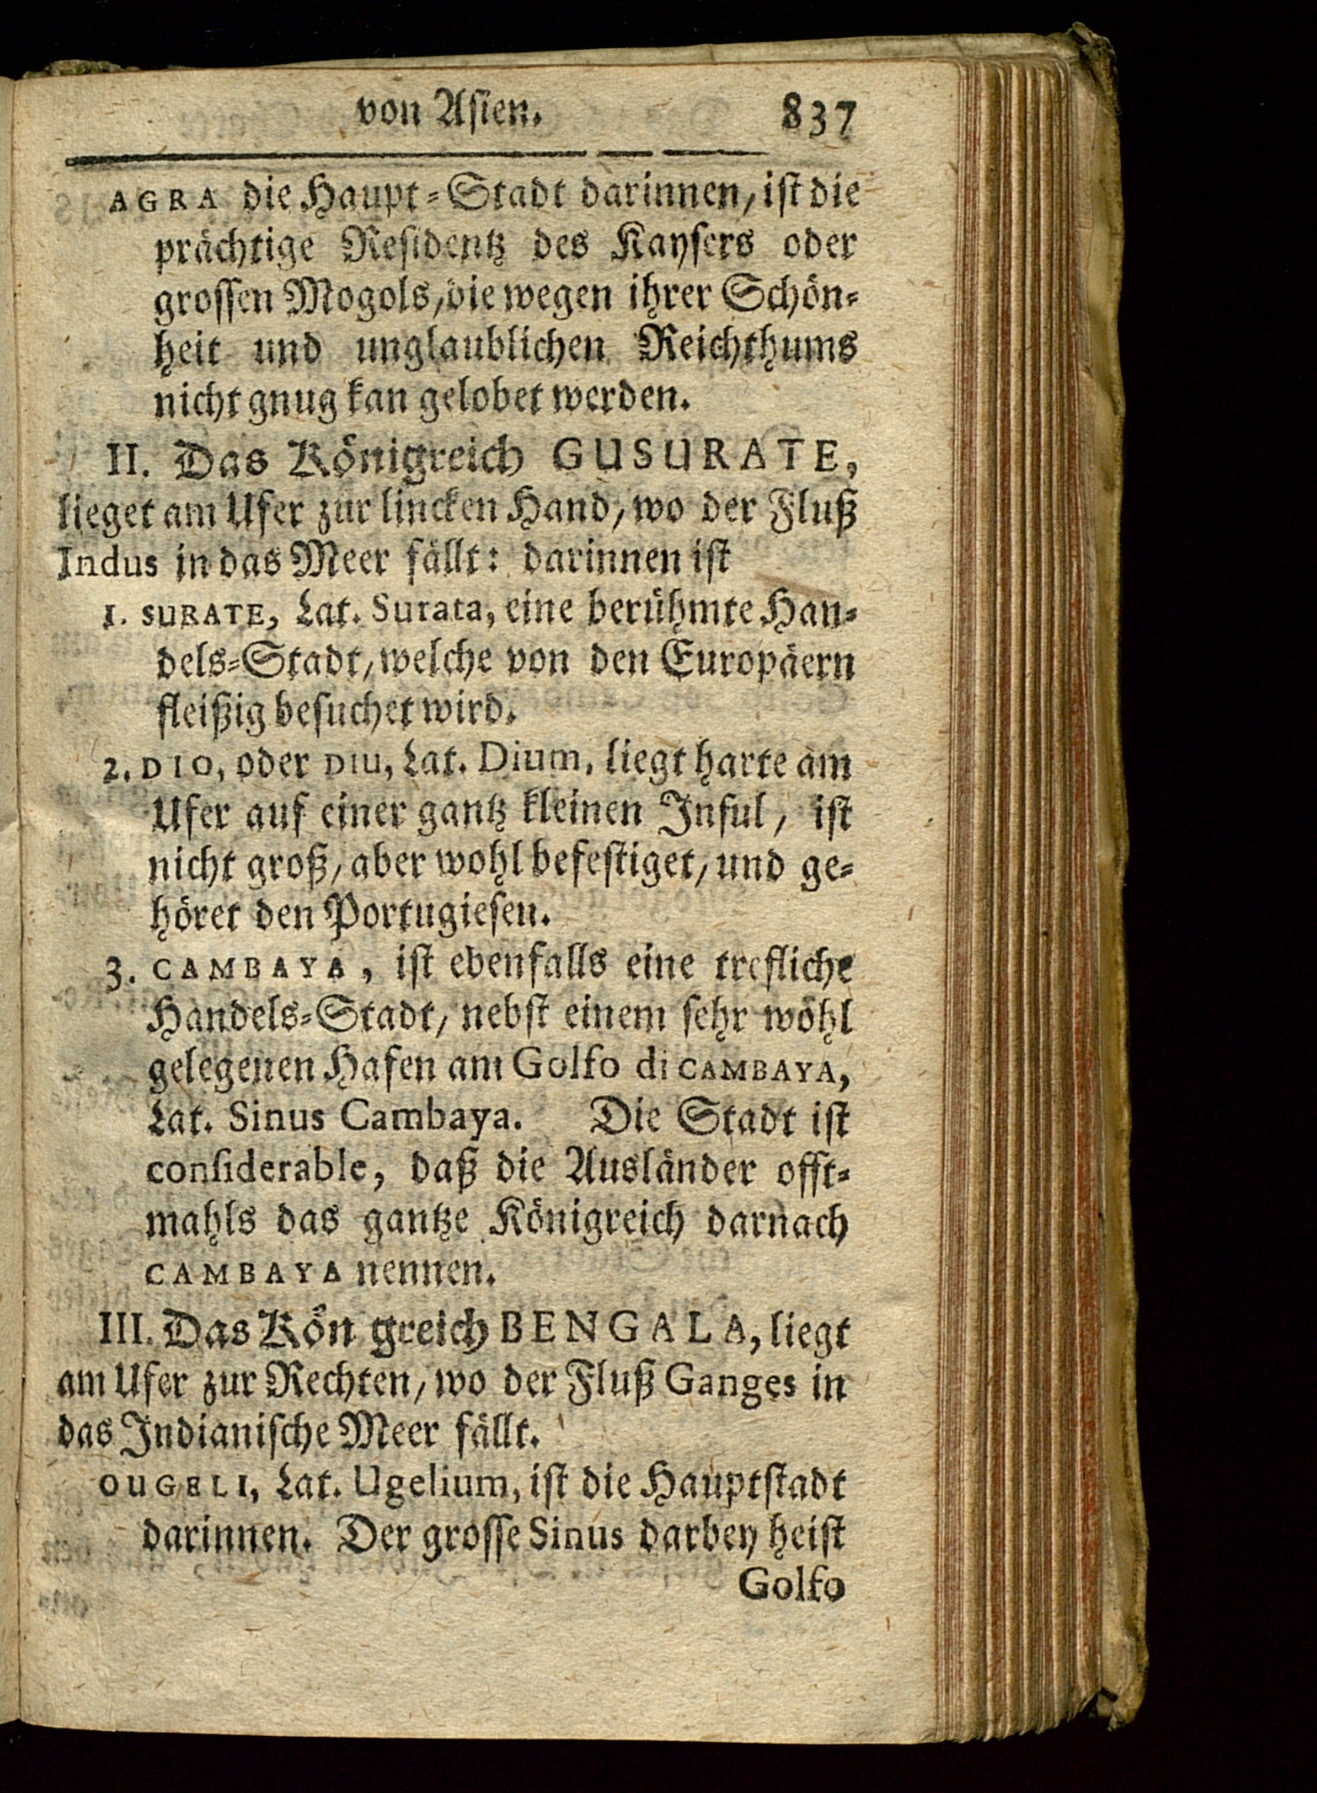 von Asien. 837
AGRA die Haupt-Stadt darinnen, ist die
prächtige Residentz des Kaysers oder
grossen Mogols, die wegen ihrer Schön-
heit und unglaublichen Reichthums
nicht gnug kan gelobet werden.
II. Das Königreich GUSURATE,
lieget am Ufer zur lincken Hand, wo der Fluß
Indus in das Meer fällt: darinnen ist
1. SURATE, Lat. Surata, eine berühmte Han-
dels-Stadt, welche von den Europäern
fleißig besuchet wird.
2. DIO, oder DIU, Lat. Dium, liegt harte am
Ufer auf einer gantz kleinen Insul, ist
nicht groß, aber wohl befestiget, und ge-
höret den Portugiesen.
3. CAMBAYA, ist ebenfalls eine trefliche
Handels-Stadt, nebst einem sehr wohl
gelegenen Hafen am Golfo di CAMBAYA,
Lat. Sinus Cambaya. Die Stadt ist
considerable, daß die Ausländer offt-
mahls das gantze Königreich darnach
CAMBAYA nennen.
III. Das Kön greich BENGALA, liegt
am Ufer zur Rechten, wo der Fluß Ganges in
das Indianische Meer fällt.
OUGELI, Lat. Ugelium, ist die Hauptstadt
darinnen. Der grosse Sinus darbey heist
Golfo